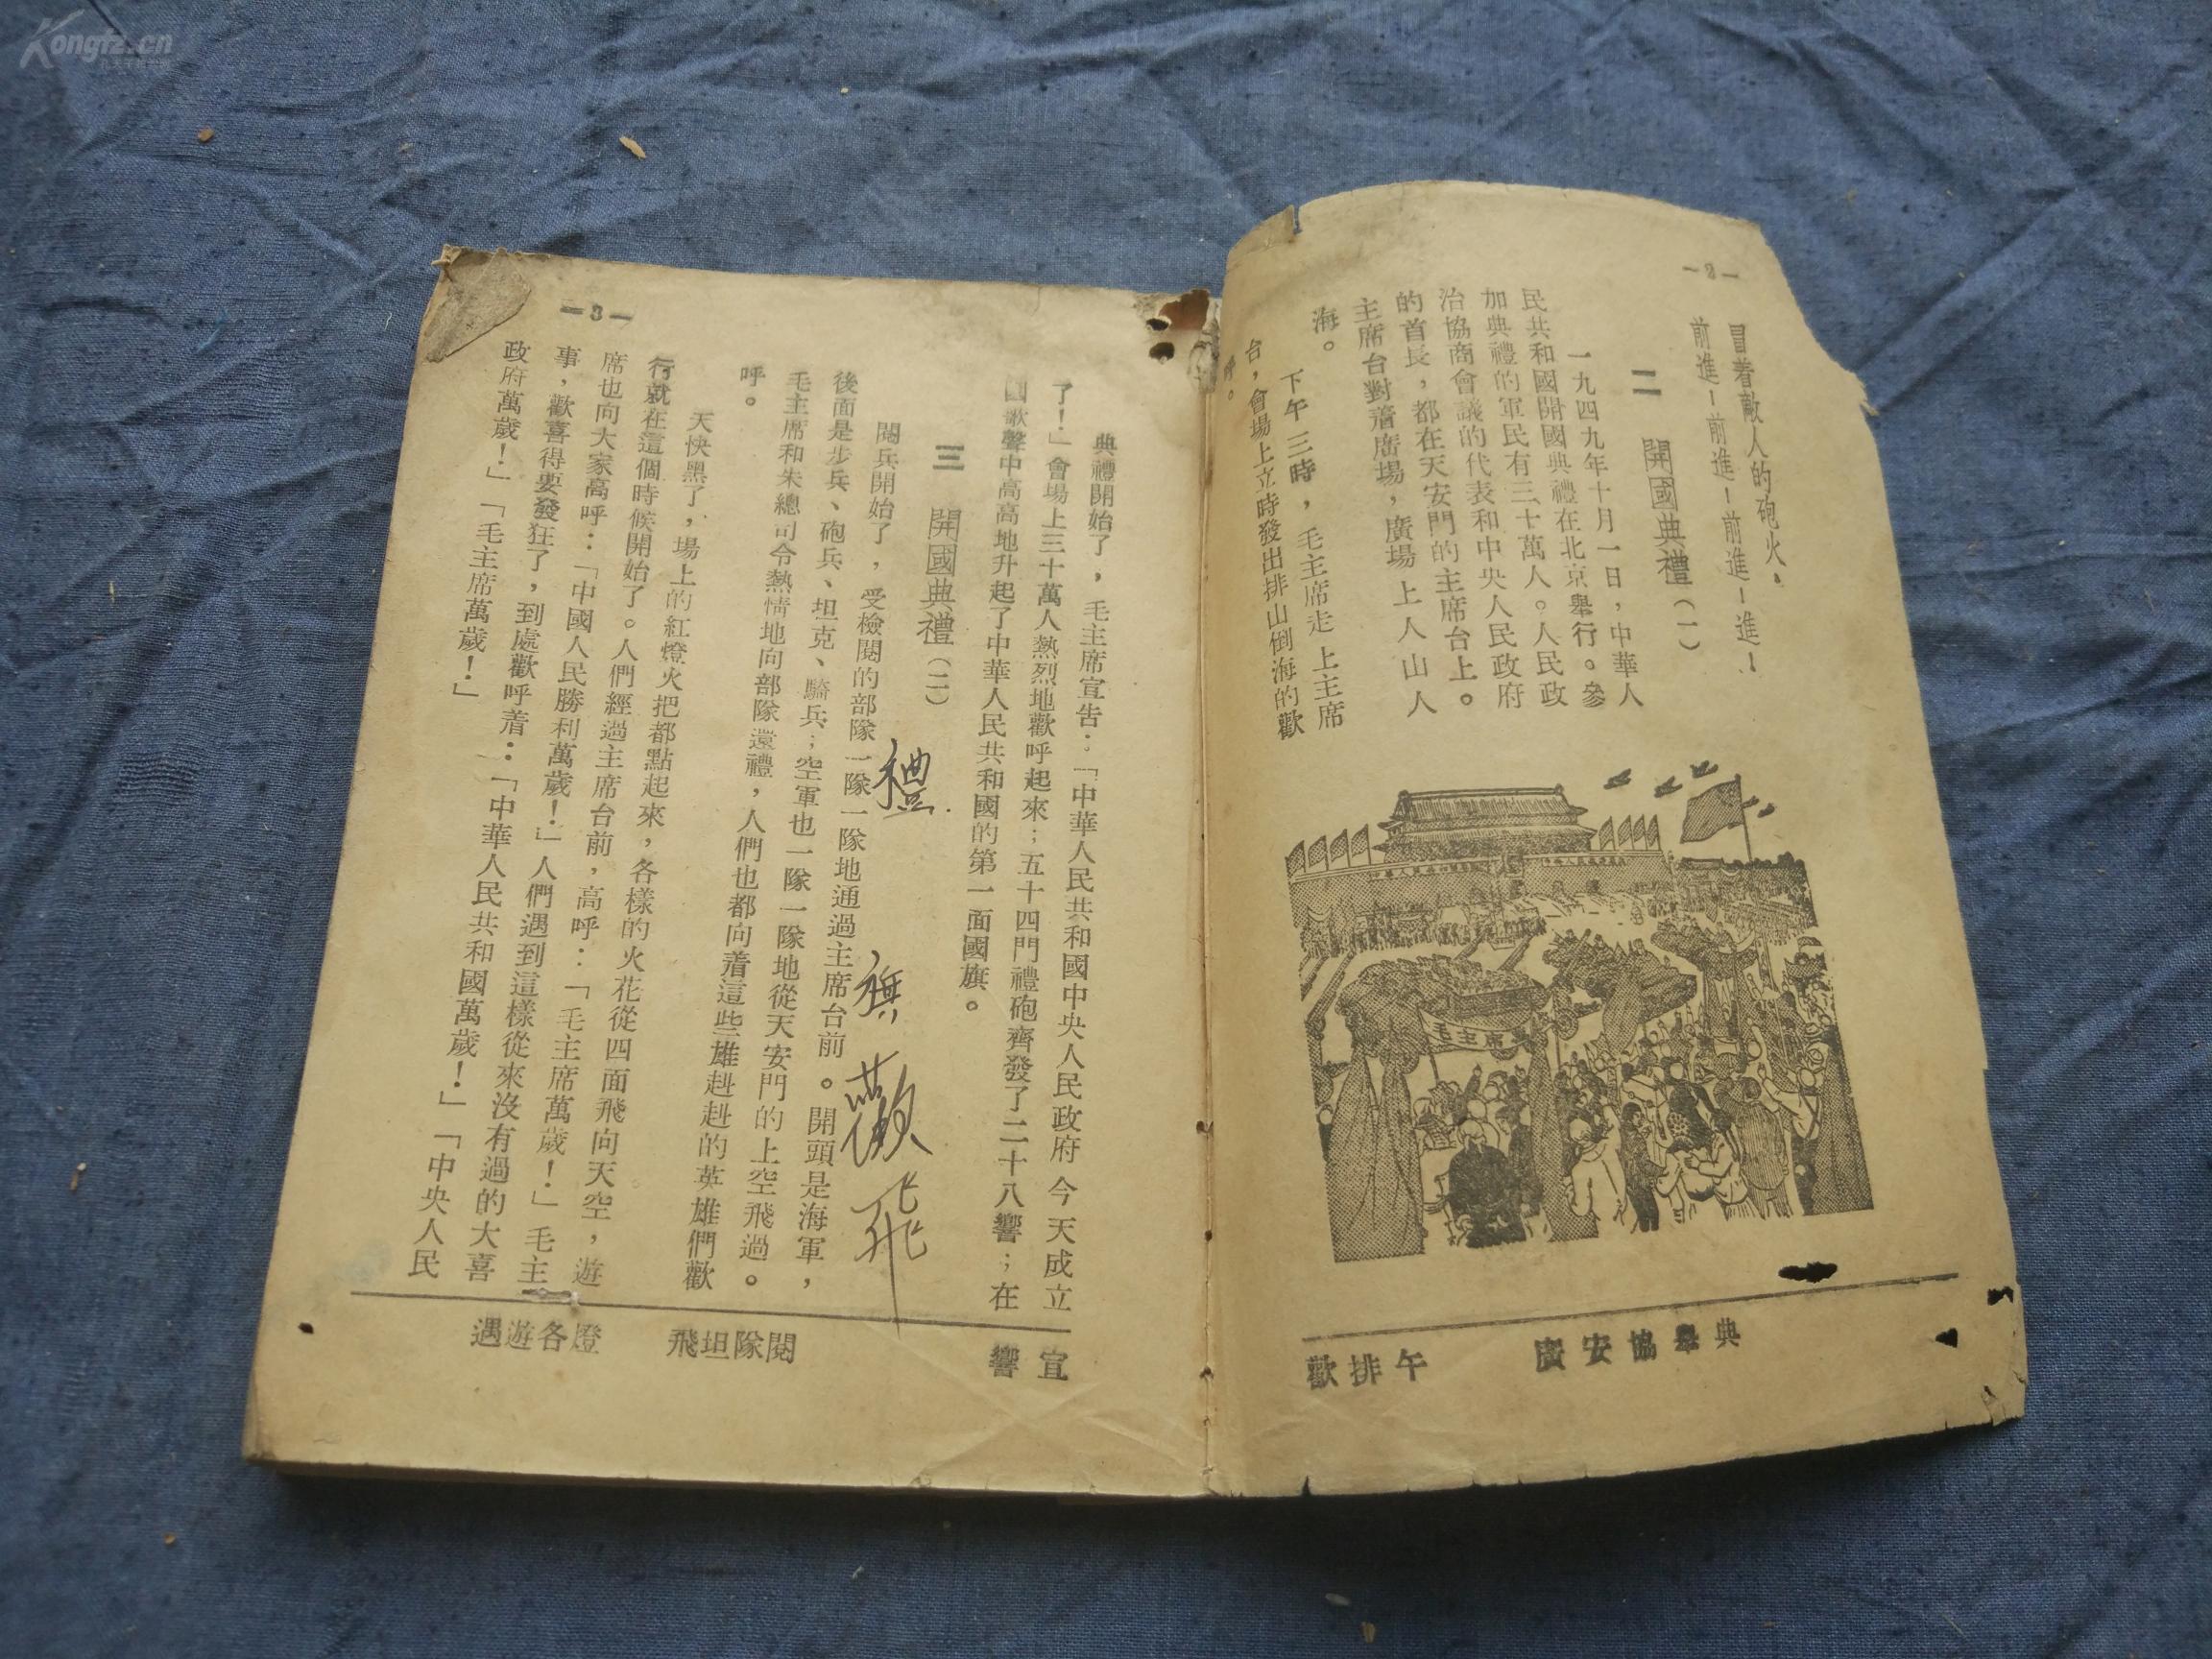 Kongfz.cn
—2—
冒着敵人的砲火,
前進!前進!前進!進!
二 開國典禮(一)
一九四九年十月一日,中華人
民共和國開國典禮在北京舉行。參
加典禮的軍民有三十萬人。人民政
治協商會議的代表和中央人民政府
的首長,都在天安門的主席台上。
主席台對着廣場,廣場上人山人
海。
下午三時,毛主席走上主席
台,會場上立時發出排山倒海的歡
呼。
毛主席
典舉協安廣
午排歡
—3—
典禮開始了,毛主席宣告:「中華人民共和國中央人民政府今天成立
了!」會場上三十萬人熱烈地歡呼起來;五十四門禮砲齊發了二十八響;在
國歌聲中高高地升起了中華人民共和國的第一面國旗。
三 開國典禮(二)
閱兵開始了,受檢閱的部隊一隊一隊地通過主席台前。開頭是海軍,
後面是步兵、砲兵、坦克、騎兵;空軍也一隊一隊地從天安門的上空飛過。
毛主席和朱總司令熱情地向部隊還禮,人們也都向着這些雄赳赳的英雄們歡
呼。
天快黑了,場上的紅燈火把都點起來,各樣的火花從四面飛向天空,遊
行就在這個時候開始了。人們經過主席台前,高呼:「毛主席萬歲!」毛主
席也向大家高呼:「中國人民勝利萬歲!」人們遇到這樣從來沒有過的大喜
事,歡喜得要發狂了,到處歡呼着:「中華人民共和國萬歲!」「中央人民
政府萬歲!」「毛主席萬歲!」
禮
旗
歡
飛
宣
響
閱隊坦飛
燈各遊遇